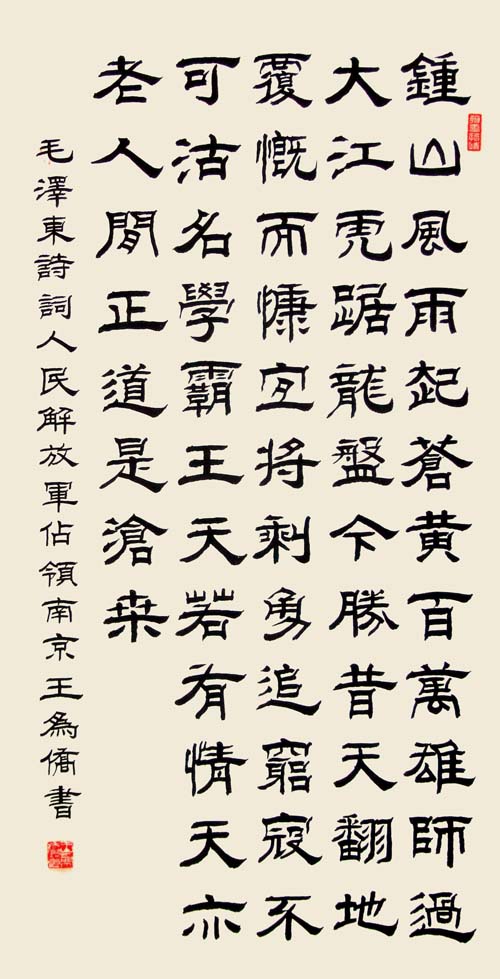 鍾山風雨起蒼黄百萬雄師過
大江虎踞龍盤今勝昔天翻地
覆慨而慷宜将剩勇追窮寇不
可沽名學霸王天若有情天亦
老人間正道是滄桒
毛澤東詩詞人民解放軍佔領南京王為僑書